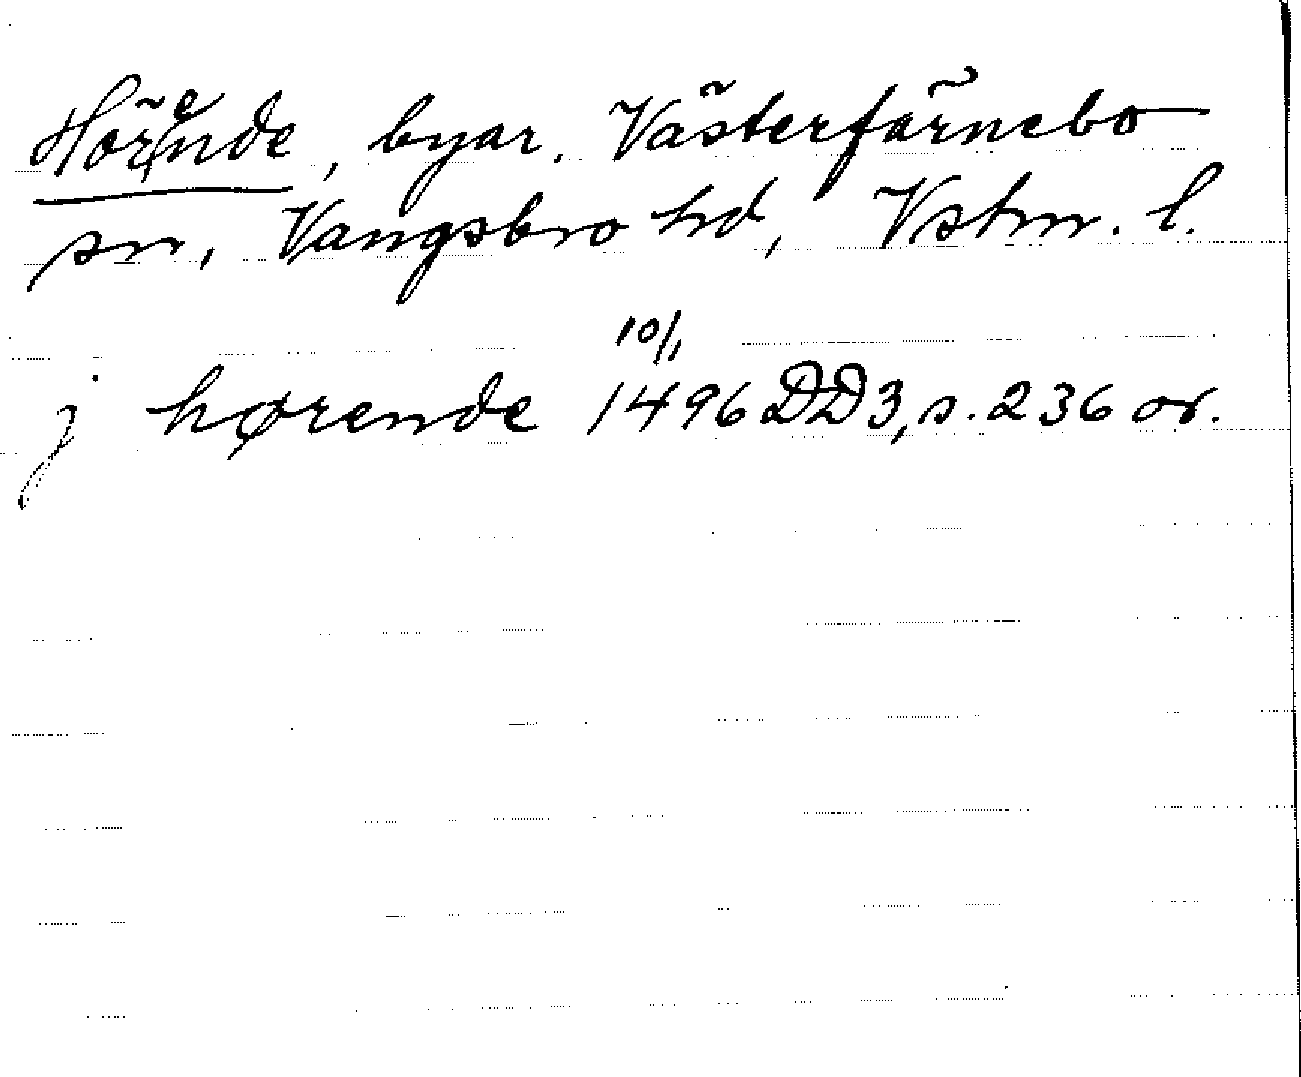 Hörende, byar, Västerfärnebo
sn, Vangsbro hd, Vstm. l.
10/1
j hørende 1496 DD3, s. 236 or.